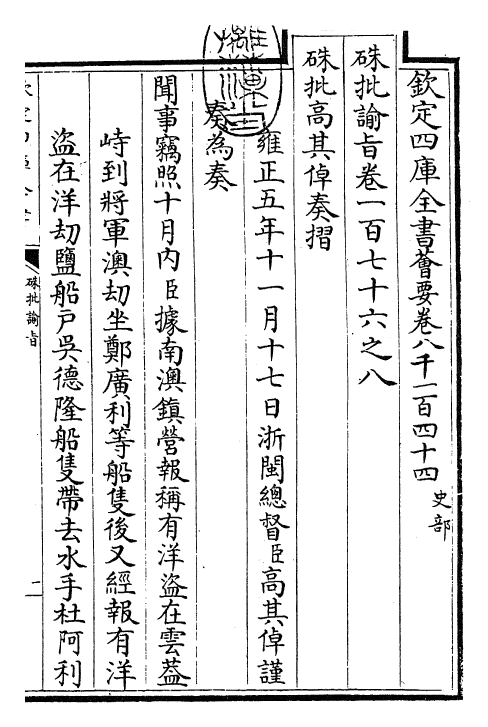 欽定四庫全書薈要卷八千一百四十四 史部
硃批諭旨卷一百七十六之八
硃批高其倬奏摺
雍正五年十一月十七日浙閩總督臣高其倬謹
奏為奏
聞事竊照十月內臣據南澳鎮營報稱有洋盜在雲葢
峙到將軍澳刼坐鄭廣利等船隻後又經報有洋
盜在洋刼鹽船戶吳德隆船隻帶去水手杜阿利
硃批諭旨
二